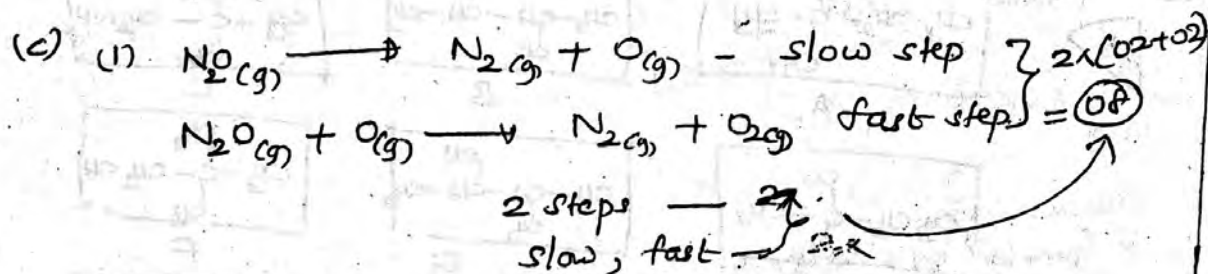 (c) (1) N₂O(g) ⟶ N₂(g) + O(g) - slow step } 2×(02+02)
N₂O(g) + O(g) ⟶ N₂(g) + O₂(g) fast step = 08
2 steps — 2
slow, fast